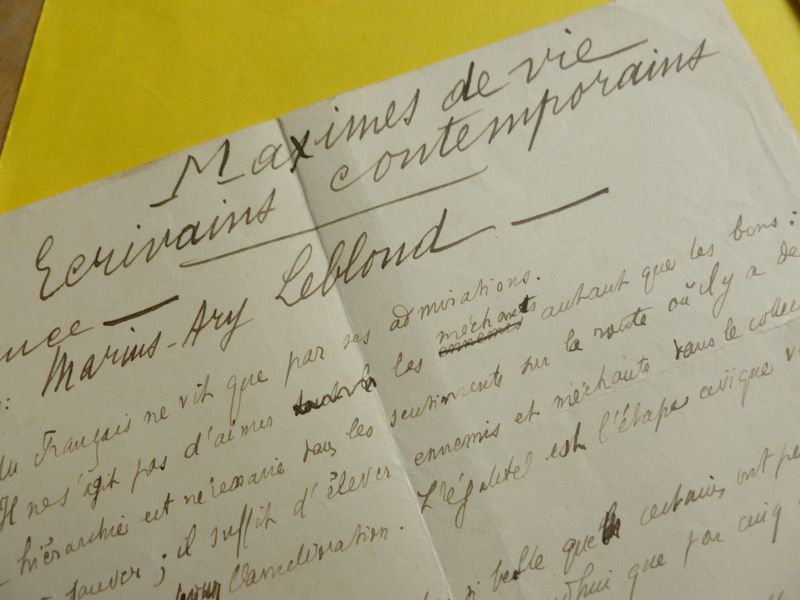 Maximes de vie
Ecrivains contemporains
Marius-Ary Leblond
du Français ne vit que par ses admirations.
Il ne s'agit pas d'aimer les méchants autant que les bons :
hiérarchie est nécessaire dans les sentiments sur la route où il y a de
sauver ; il suffit d'élever ennemis et méchants dans le
l'amélioration. L'égalité est l'étape civique
belle que certains ont
que par cinq